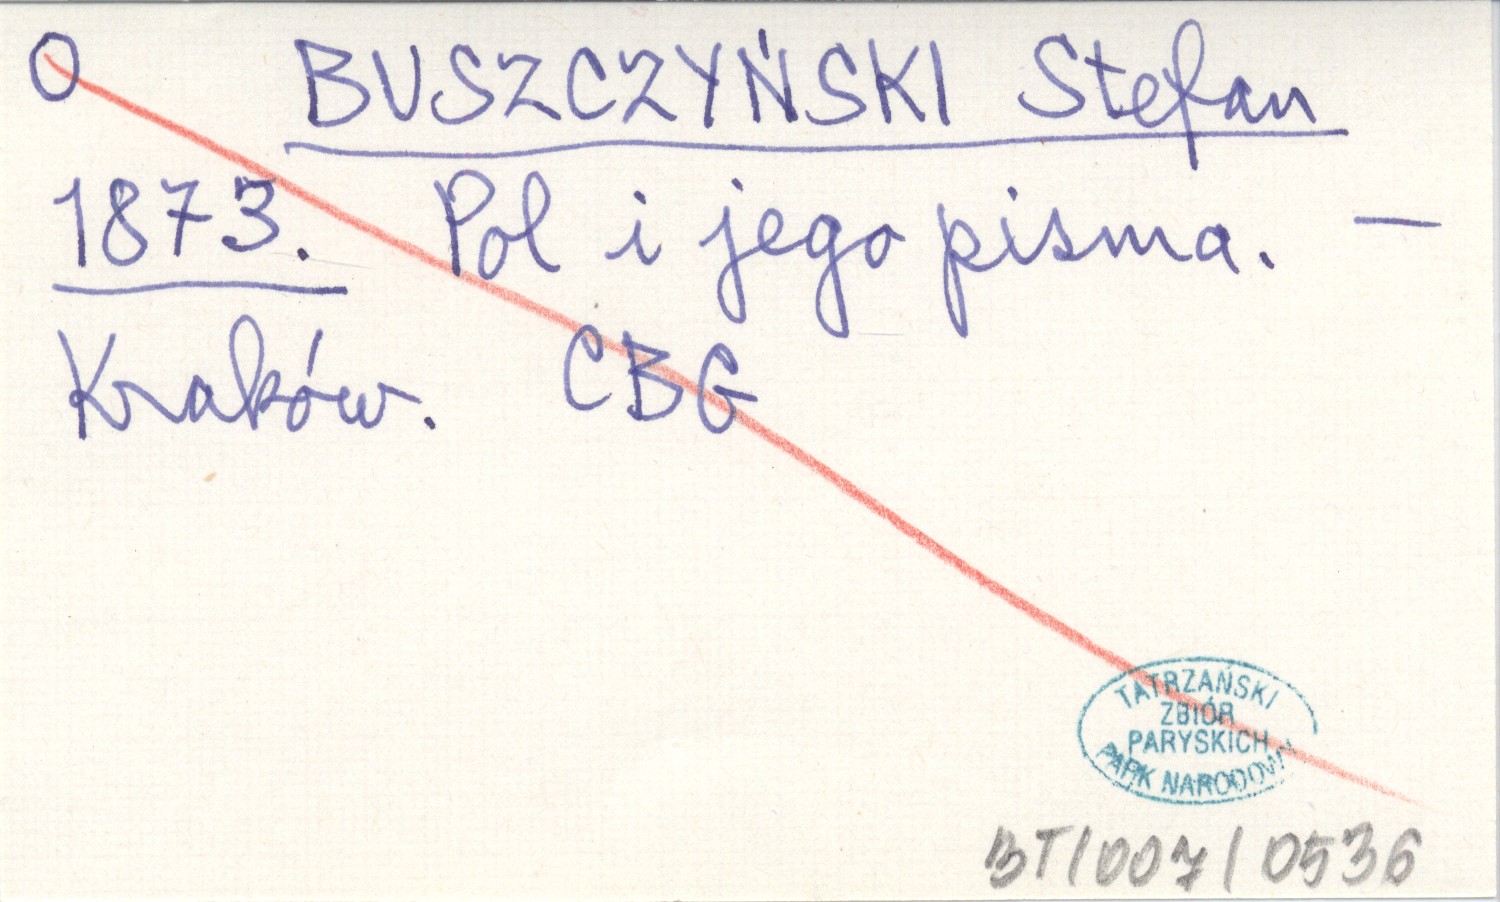 O BUSZCZYŃSKI Stefan
1873. Pol i jego pisma. —
Kraków. CBG
TATRZAŃSKI
ZBIÓR
PARYSKICH
PARK NARODOWY
BT/007/0536